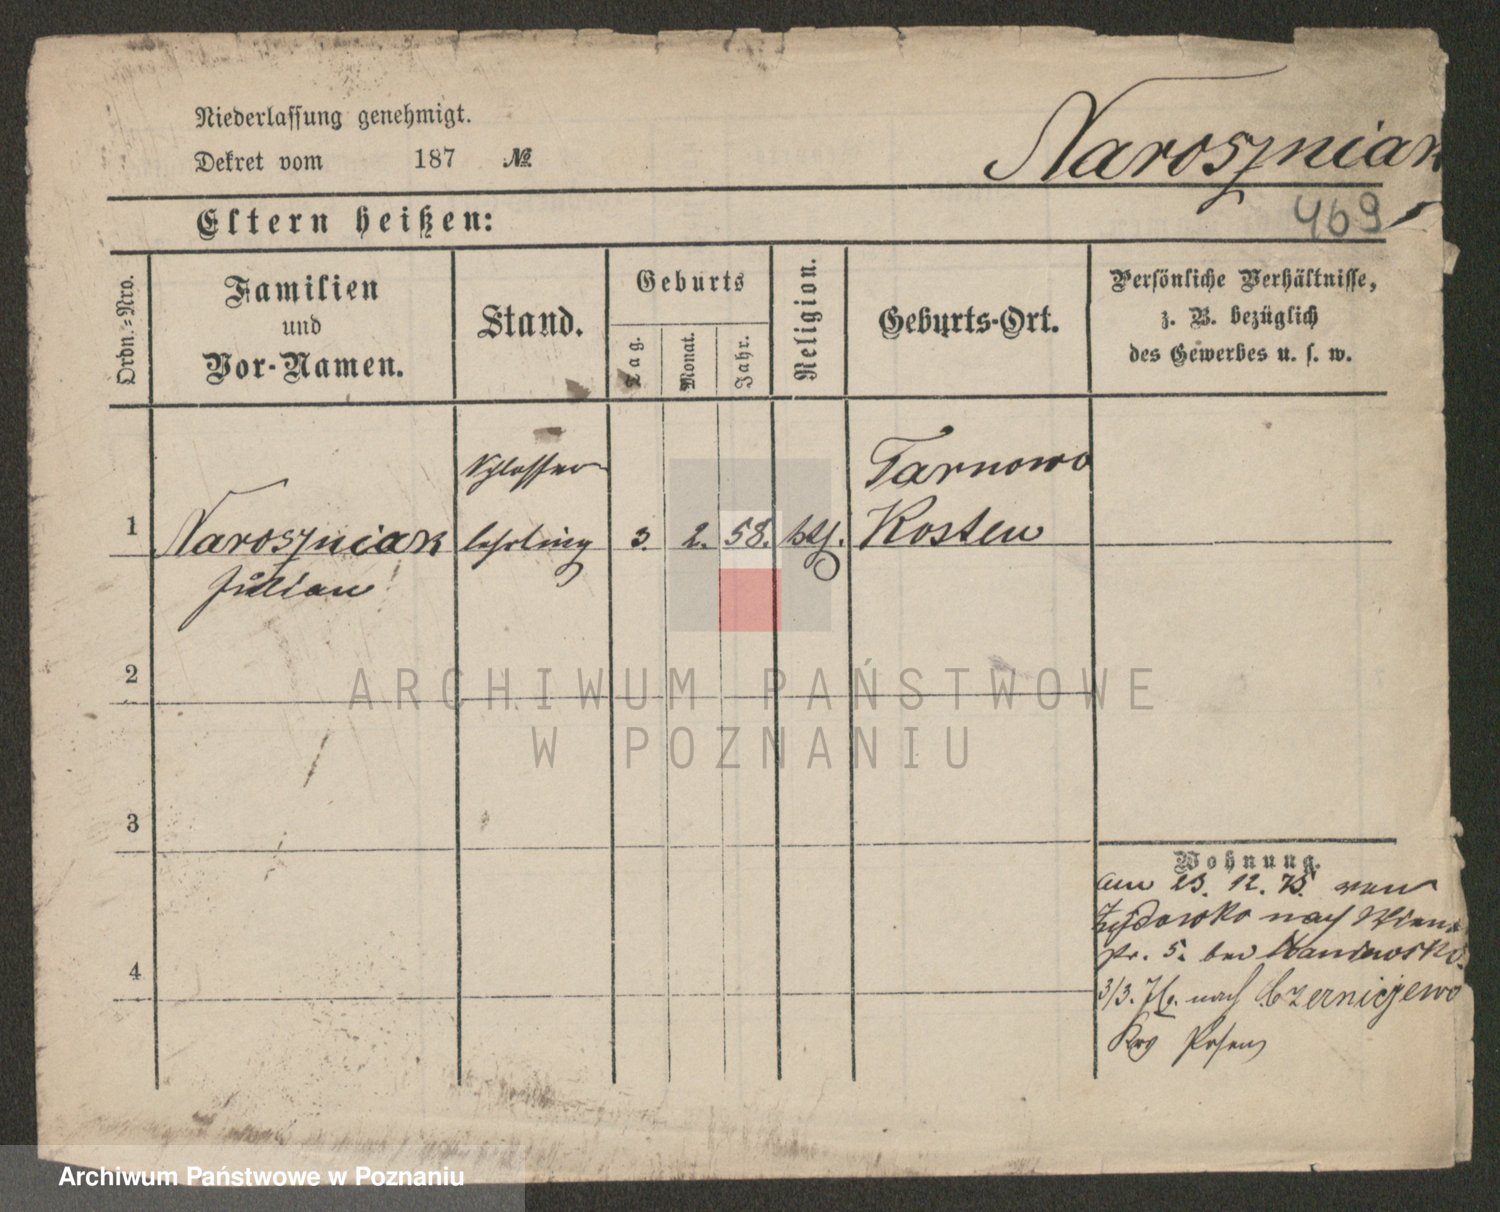 Niederlassung genehmigt.
Dekret vom 187 №
Naroszniak
469
Eltern heißen:
Ordn.-Nro.
Familien
und
Vor-Namen.
Stand.
Geburts
Tag.
Monat.
Jahr.
Religion.
Geburts-Ort.
Persönliche Verhältnisse,
z. B. bezüglich
des Gewerbes u. s. w.
1
Naroszniak
Julian
Schlosser
lehrling
3. 2. 58. kth.
Tarnowo
Kosten
2
3
4
Wohnung.
am 23. 12. 75 von
nach
5. bei
3/3. 76. nach Czerniejewo
Posen
ARCHIWUM PAŃSTWOWE
W POZNANIU
Archiwum Państwowe w Poznaniu